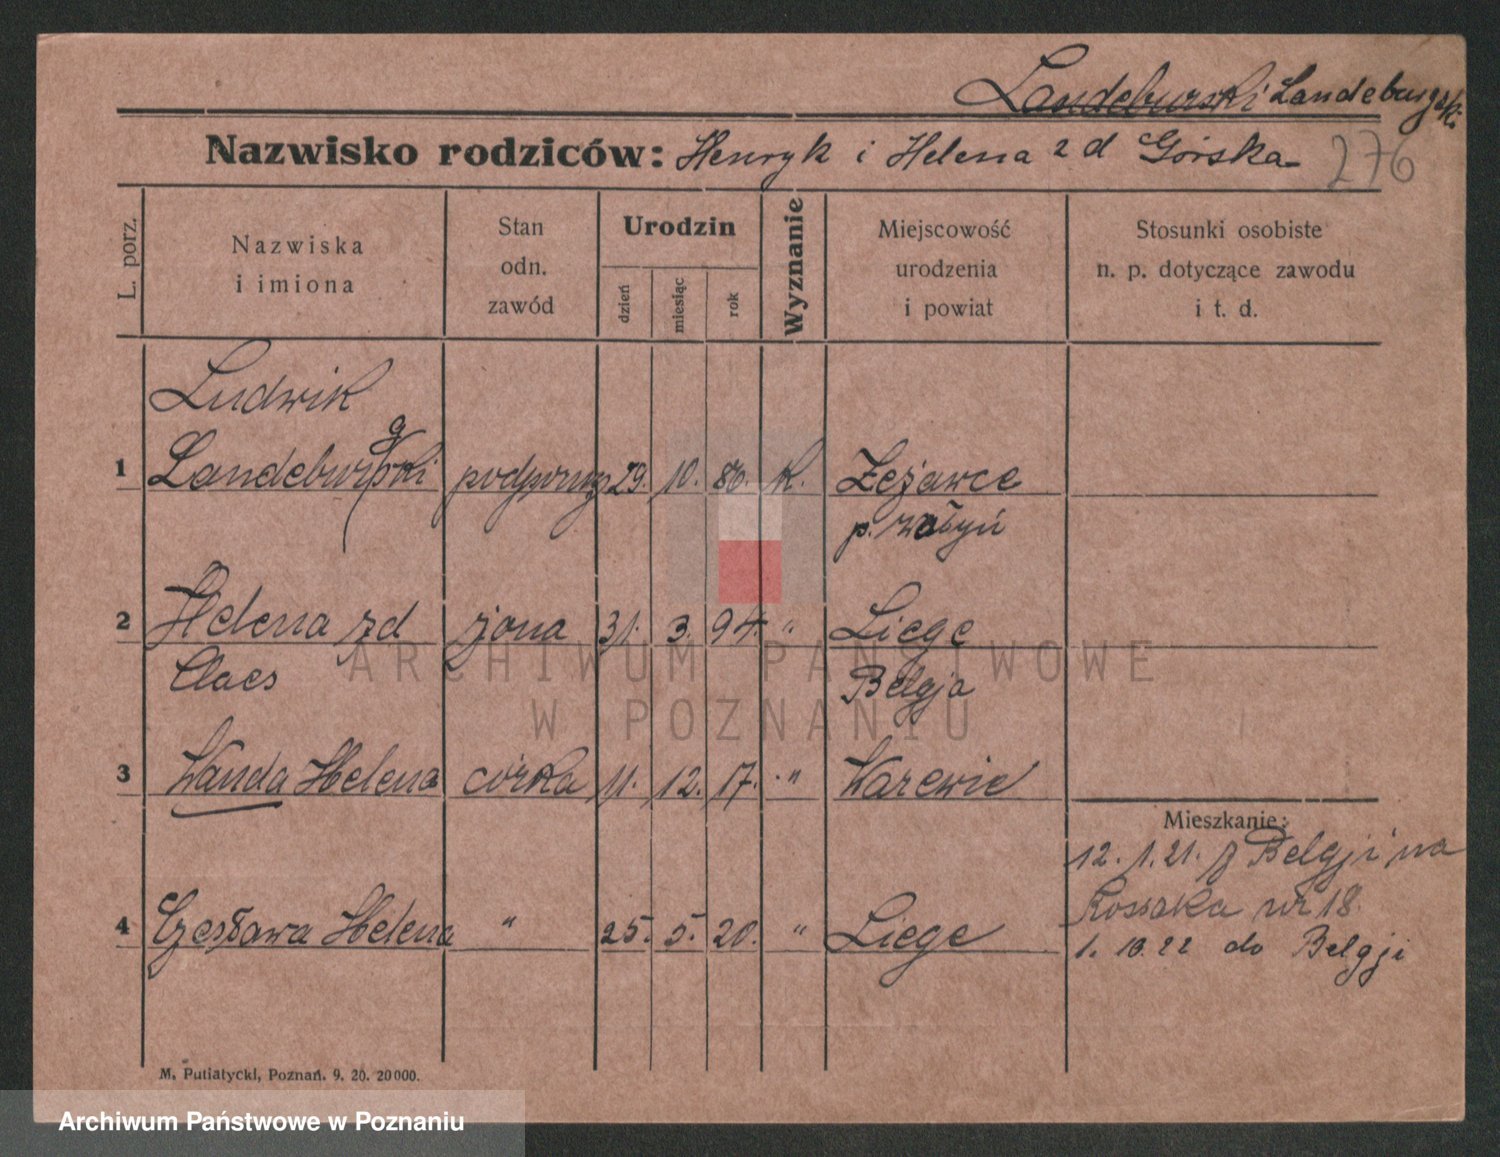 Landeburski Landeburgski
Nazwisko rodziców: Henryk i Helena z d Górska
276
L. porz.
Nazwiska i imiona
Stan odn. zawód
Urodzin
dzień
miesiąc
rok
Wyznanie
Miejscowość urodzenia i powiat
Stosunki osobiste n. p. dotyczące zawodu i t. d.
Ludwik
g
1 Landeburski 29. 10. 86. k.
2 Helena zd żona 31. 3. 94. " Liege
Claes Belgja
3 Wanda Helena córka 11. 12. 17. "
Mieszkanie:
12. 1. 21. z Belgji na
4 Czesława Helena " 25. 5. 20. " Liege Kossaka nr 18.
1. 10. 22 do Belgji
M. Putiatycki, Poznań. 9. 20. 20000.
ARCHIWUM PAŃSTWOWE
W POZNANIU
Archiwum Państwowe w Poznaniu